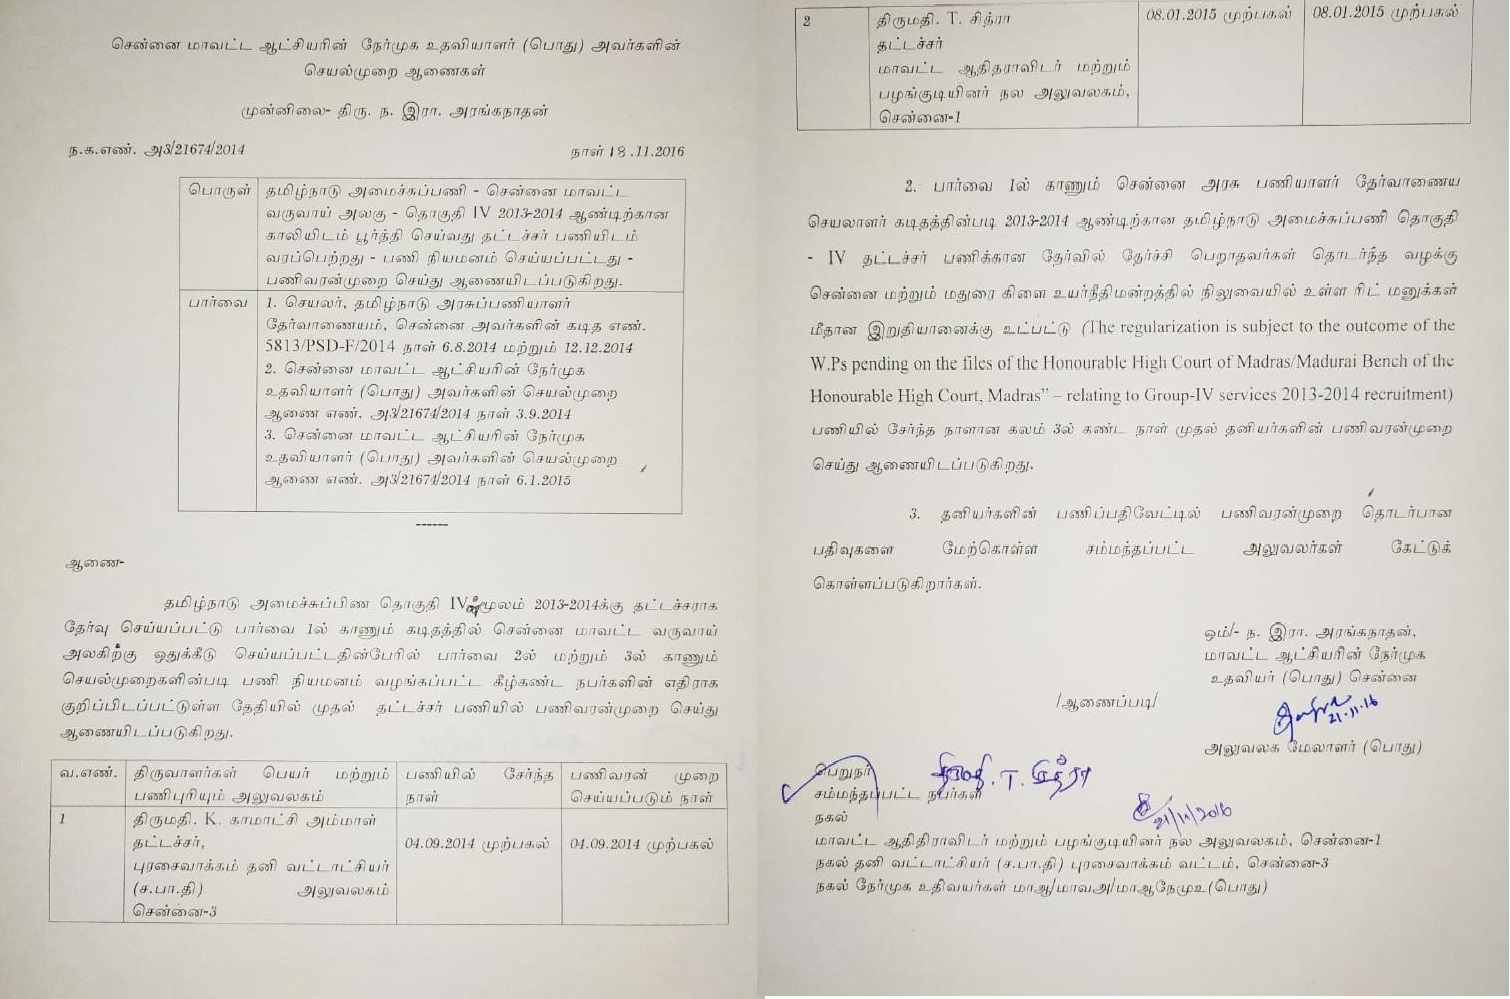 சென்னை மாவட்ட ஆட்சியரின் நேர்முக உதவியாளர் (பொது) அவர்களின்
செயல்முறை ஆணைகள்
முன்னிலை- திரு. ந. இரா. அரங்கநாதன்
ந.க.எண். அ3/21674/2014 நாள் 18.11.2016
பொருள் தமிழ்நாடு அமைச்சுப்பணி - சென்னை மாவட்ட
வருவாய் அலகு - தொகுதி IV 2013-2014 ஆண்டிற்கான
காலியிடம் பூர்த்தி செய்வது தட்டச்சர் பணியிடம்
வரப்பெற்றது - பணி நியமனம் செய்யப்பட்டது -
பணிவரன்முறை செய்து ஆணையிடப்படுகிறது.
பார்வை 1. செயலர், தமிழ்நாடு அரசுப்பணியாளர்
தேர்வாணையம், சென்னை அவர்களின் கடித எண்.
5813/PSD-F/2014 நாள் 6.8.2014 மற்றும் 12.12.2014
2. சென்னை மாவட்ட ஆட்சியரின் நேர்முக
உதவியாளர் (பொது) அவர்களின் செயல்முறை
ஆணை எண். அ3/21674/2014 நாள் 3.9.2014
3. சென்னை மாவட்ட ஆட்சியரின் நேர்முக
உதவியாளர் (பொது) அவர்களின் செயல்முறை
ஆணை எண். அ3/21674/2014 நாள் 6.1.2015
------
ஆணை-
தமிழ்நாடு அமைச்சுப்பிண தொகுதி IV மூலம் 2013-2014க்கு தட்டச்சராக
தேர்வு செய்யப்பட்டு பார்வை 1ல் காணும் கடிதத்தில் சென்னை மாவட்ட வருவாய்
அலகிற்கு ஒதுக்கீடு செய்யப்பட்டதின்பேரில் பார்வை 2ல் மற்றும் 3ல் காணும்
செயல்முறைகளின்படி பணி நியமனம் வழங்கப்பட்ட கீழ்கண்ட நபர்களின் எதிராக
குறிப்பிடப்பட்டுள்ள தேதியில் முதல் தட்டச்சர் பணியில் பணிவரன்முறை செய்து
ஆணையிடப்படுகிறது.
வ.எண். திருவாளர்கள் பெயர் மற்றும் பணியில் சேர்ந்த பணிவரன் முறை
பணிபுரியும் அலுவலகம் நாள் செய்யப்படும் நாள்
1 திருமதி. K. காமாட்சி அம்மாள்
தட்டச்சர், 04.09.2014 முற்பகல் 04.09.2014 முற்பகல்
புரசைவாக்கம் தனி வட்டாட்சியர்
(ச.பா.தி) அலுவலகம்
சென்னை-3
2 திருமதி. T. சித்ரா 08.01.2015 முற்பகல் 08.01.2015 முற்பகல்
தட்டச்சர்
மாவட்ட ஆதிதராவிடர் மற்றும்
பழங்குடியினர் நல அலுவலகம்,
சென்னை-1
2. பார்வை 1ல் காணும் சென்னை அரசு பணியாளர் தேர்வாணைய
செயலாளர் கடிதத்தின்படி 2013-2014 ஆண்டிற்கான தமிழ்நாடு அமைச்சுப்பணி தொகுதி
- IV தட்டச்சர் பணிக்கான தேர்வில் தேர்ச்சி பெறாதவர்கள் தொடர்ந்த வழக்கு
சென்னை மற்றும் மதுரை கிளை உயர்நீதிமன்றத்தில் நிலுவையில் உள்ள ரிட் மனுக்கள்
மீதான இறுதியானைக்கு உட்பட்டு (The regularization is subject to the outcome of the
W.Ps pending on the files of the Honourable High Court of Madras/Madurai Bench of the
Honourable High Court, Madras” – relating to Group-IV services 2013-2014 recruitment)
பணியில் சேர்ந்த நாளான கலம் 3ல் கண்ட நாள் முதல் தனியர்களின் பணிவரன்முறை
செய்து ஆணையிடப்படுகிறது.
3. தனியர்களின் பணிப்பதிவேட்டில் பணிவரன்முறை தொடர்பான
பதிவுகளை மேற்கொள்ள சம்மந்தப்பட்ட அலுவலர்கள் கேட்டுக்
கொள்ளப்படுகிறார்கள்.
ஒம்/- ந. இரா. அரங்கநாதன்,
மாவட்ட ஆட்சியரின் நேர்முக
உதவியர் (பொது) சென்னை
/ஆணைப்படி/
21.11.16
அலுவலக மேலாளர் (பொது)
பெறுநர்
திருமதி. T. சித்ரா
சம்மந்தப்பட்ட நபர்கள்
21/11/2016
நகல்
மாவட்ட ஆதிதிராவிடர் மற்றும் பழங்குடியினர் நல அலுவலகம், சென்னை-1
நகல் தனி வட்டாட்சியர் (ச.பா.தி) புரசைவாக்கம் வட்டம், சென்னை-3
நகல் நேர்முக உதிவயர்கள் மாஆ/மாவஅ/மாஆநேமுஉ(பொது)